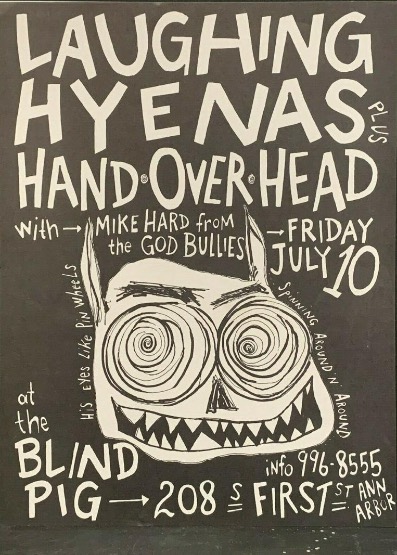 LAUGHING
HYENAS
PLUS
HAND•OVER•HEAD
with → MIKE HARD from
the GOD BULLIES
→ FRIDAY
JULY 10
HiS EYES LiKE PiN WHEELS
SPiNNING AROUND N' AROUND
at
the
BLIND
PIG → 208 S FIRST ST ANN
ARBOR
info 996-8555